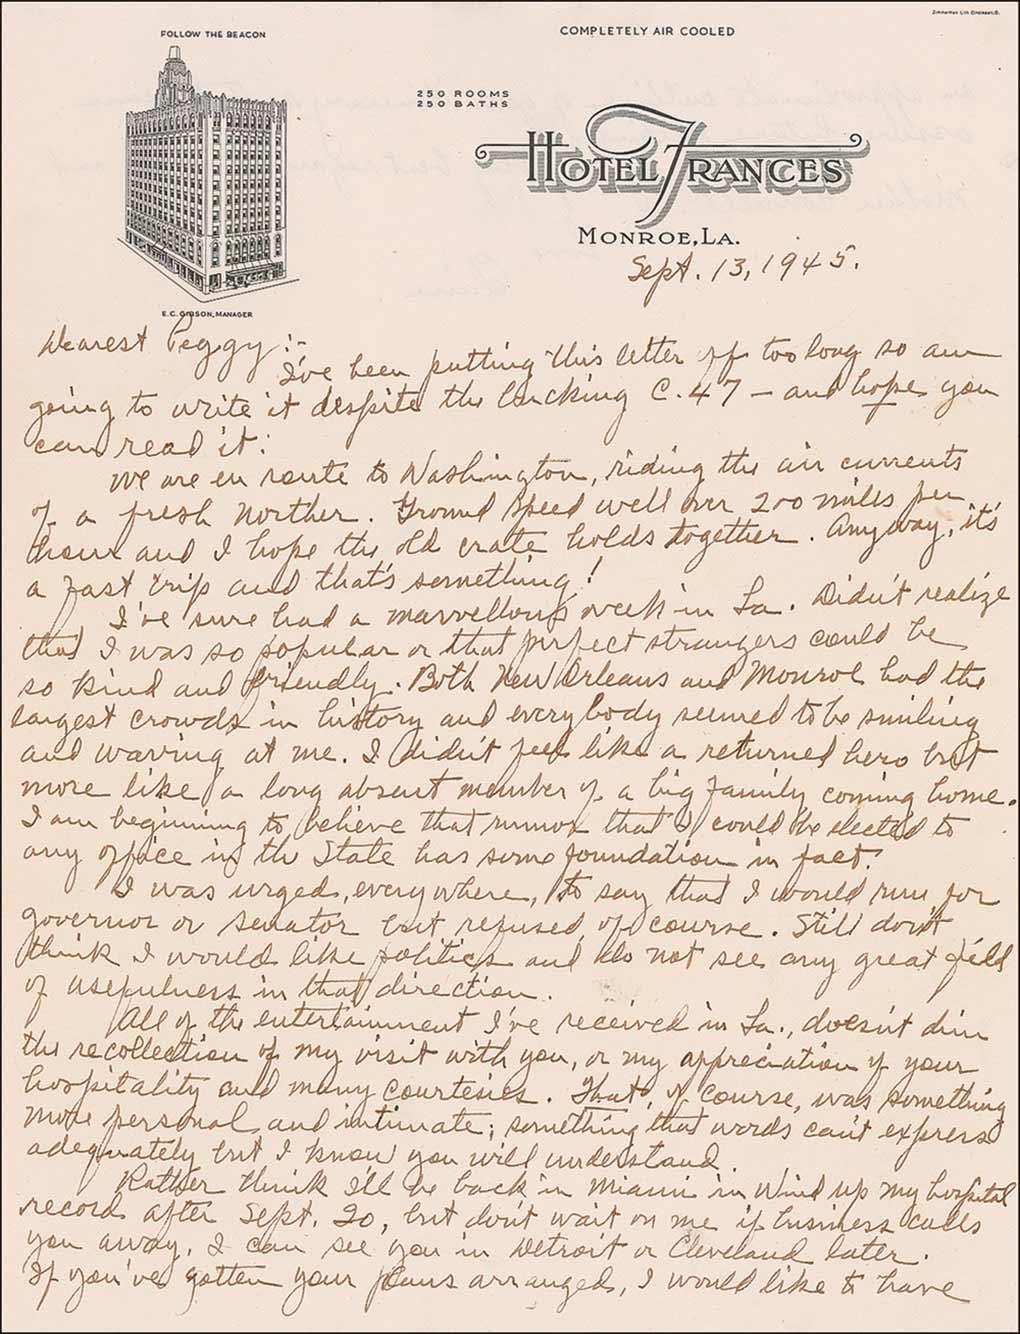 Zimmerman Lith Cincinnati, O.
FOLLOW THE BEACON
COMPLETELY AIR COOLED
250 ROOMS
250 BATHS
HOTEL FRANCES
MONROE, LA.
E.C. GIBSON, MANAGER
Sept. 13, 1945.
Dearest Peggy:-
I've been putting this letter off too long so am
going to write it despite the bucking C.47 – and hope you
can read it.
We are en route to Washington, riding the air currents
of a fresh norther. Ground speed well over 200 miles per
hour and I hope the old crate holds together. Anyway, it's
a fast trip and that's something!
I've sure had a marvellous week in La. Didn't realize
that I was so popular or that perfect strangers could be
so kind and friendly. Both New Orleans and Monroe had the
largest crowds in history and everybody seemed to be smiling
and waving at me. I didn't feel like a returned hero but
more like a long absent member of a big family coming home.
I am beginning to believe that rumor that I could be elected to
any office in the State has some foundation in fact.
I was urged, everywhere, to say that I would run for
governor or senator but refused, of course. Still don't
think I would like politics and do not see any great field
of usefulness in that direction.
All of the entertainment I've received in La., doesn't dim
the recollection of my visit with you, or my appreciation of your
hospitality and many courtesies. That, of course, was something
more personal and intimate; something that words can't express
adequately but I know you will understand.
Rather think I'll be back in Miami in wind up my hospital
record after Sept. 20, but don't wait on me if business calls
you away. I can see you in Detroit or Cleveland later.
If you've gotten your plans arranged, I would like to have